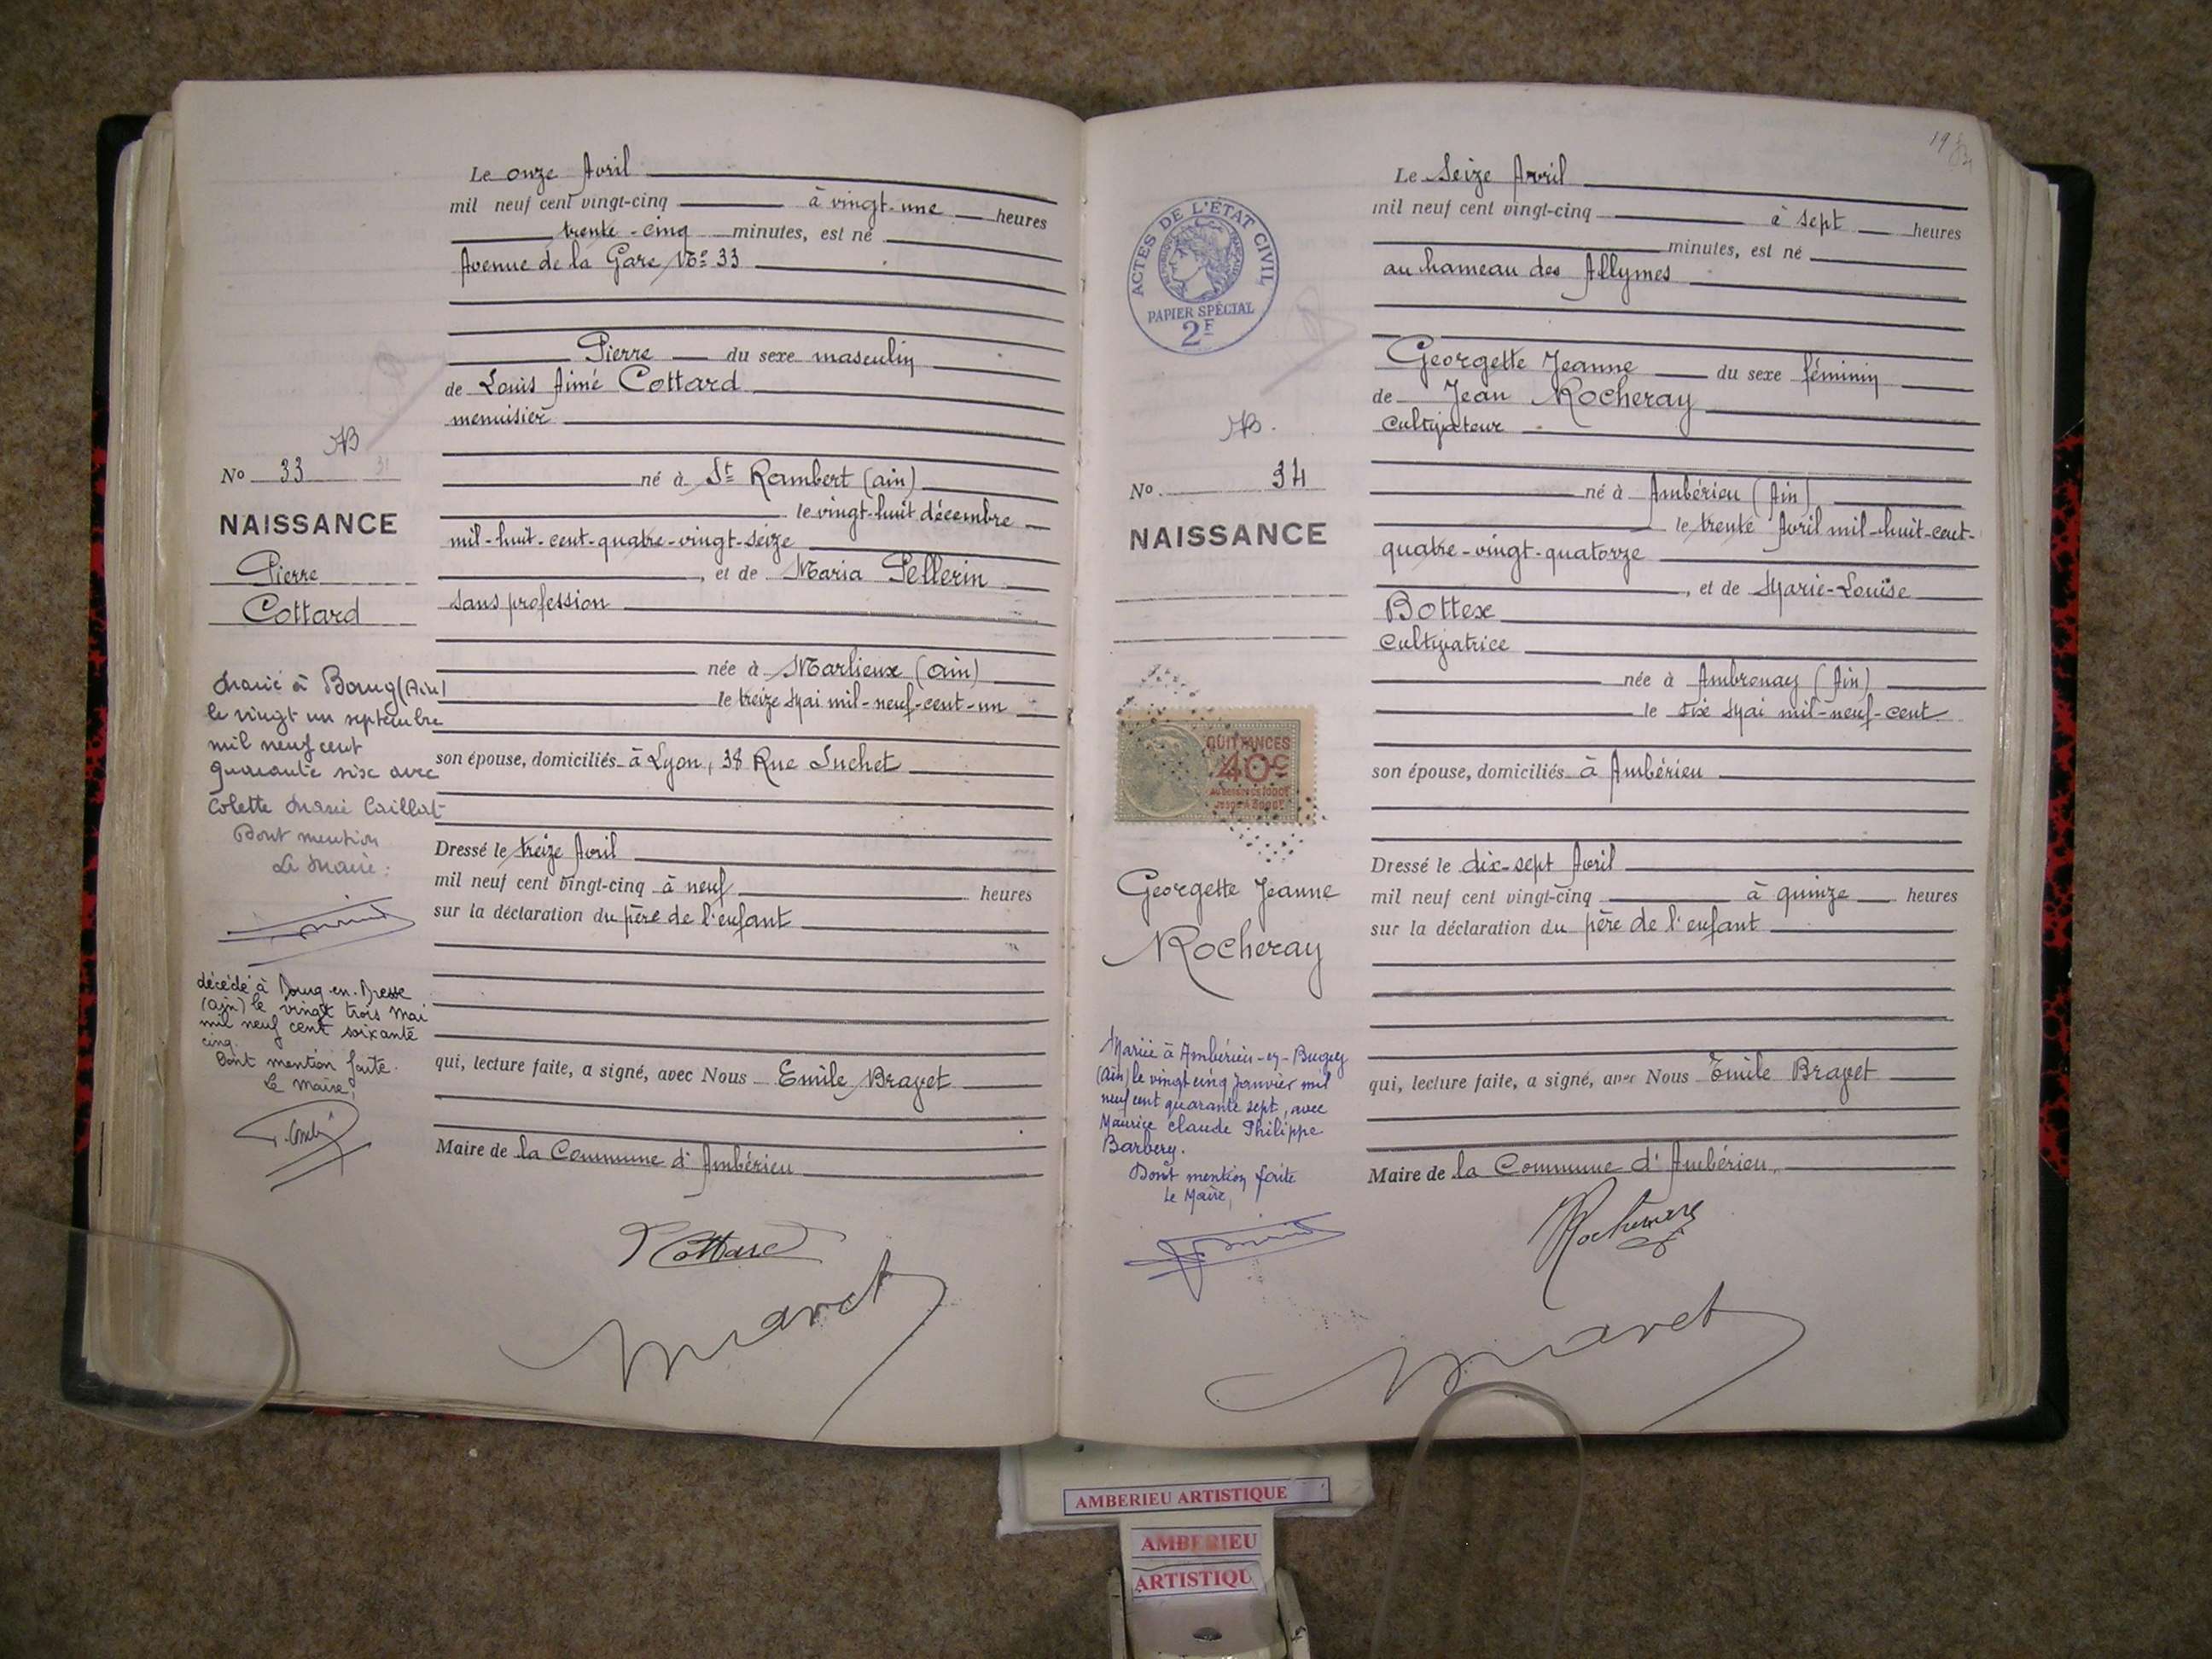 Le onze Avril
mil neuf cent vingt-cinq à vingt-une heures
trente-cinq minutes, est né
Avenue de la Gare, No 33
Pierre du sexe masculin
de Louis Aimé Cottard
menuisier
né à St Rambert (ain)
le vingt-huit décembre
mil-huit-cent-quatre-vingt-seize
, et de Maria Pellerin
sans profession
née à Marlieux (ain)
le treize Mai mil-neuf-cent-un
son épouse, domiciliés à Lyon, 38 Rue Suchet
Dressé le treize Avril
mil neuf cent vingt-cinq à neuf heures
sur la déclaration du père de l'enfant
qui, lecture faite, a signé, avec Nous Emile Bravet
Maire de la Commune d'Ambérieu
Cottard
Bravet
AB
No 33 31
NAISSANCE
Pierre
Cottard
Marié à Bourg (Ain)
le vingt un septembre
mil neuf cent
quarante six avec
Colette Marie Caillat
Dont mention
Le Maire:
décédé à Bourg-en-Bresse
(Ain) le vingt trois Mai
mil neuf cent soixante
cinq.
Dont mention faite.
Le Maire,
19
ACTES DE L'ÉTAT CIVIL
RÉPUBLIQUE FRANÇAISE
PAPIER SPÉCIAL
2F
Le Seize Avril
mil neuf cent vingt-cinq à sept heures
minutes, est né
au hameau des Allymes
Georgette Jeanne du sexe féminin
de Jean Rocheray
Cultivateur
né à Ambérieu (Ain)
le trente Avril mil-huit-cent-
quatre-vingt-quatorze
, et de Marie-Louise
Bottex
Cultivatrice
née à Ambronay (Ain)
le six Mai mil-neuf-cent
son épouse, domiciliés à Ambérieu
Dressé le dix-sept Avril
mil neuf cent vingt-cinq à quinze heures
sur la déclaration du père de l'enfant
qui, lecture faite, a signé, avec Nous Emile Bravet
Maire de la Commune d'Ambérieu
Rocheray
Bravet
AB.
No 34
NAISSANCE
QUITTANCES
40c
AU DESSUS DE 1000F
JUSQU'À 3000F
Georgette Jeanne
Rocheray
Mariée à Ambérieu-en-Bugey
(Ain) le vingt cinq Janvier mil
neuf cent quarante sept, avec
Maurice Claude Philippe
Barbery.
Dont mention faite
Le Maire,
AMBERIEU ARTISTIQUE
AMBERIEU
ARTISTIQU